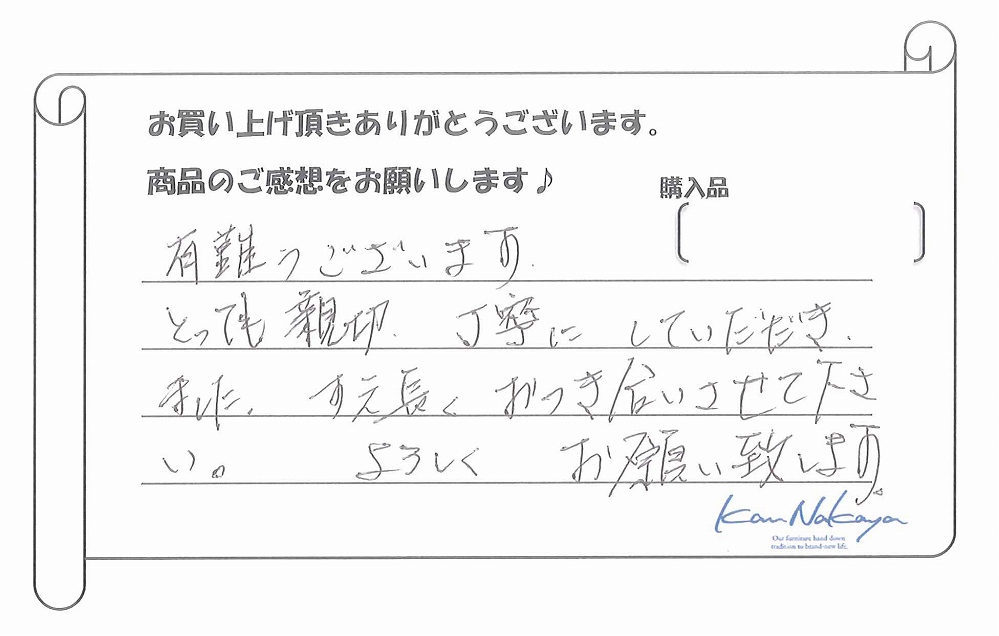 お買い上げ頂きありがとうございます。
商品のご感想をお願いします♪
購入品
有難うございます.
とっても親切. 丁寧にしていただき.
ました. すえ長くおつき合いさせて下さ
い。 よろしくお願い致します。
Kan Nakaya
Our furniture hand down
tradition to brand-new life.